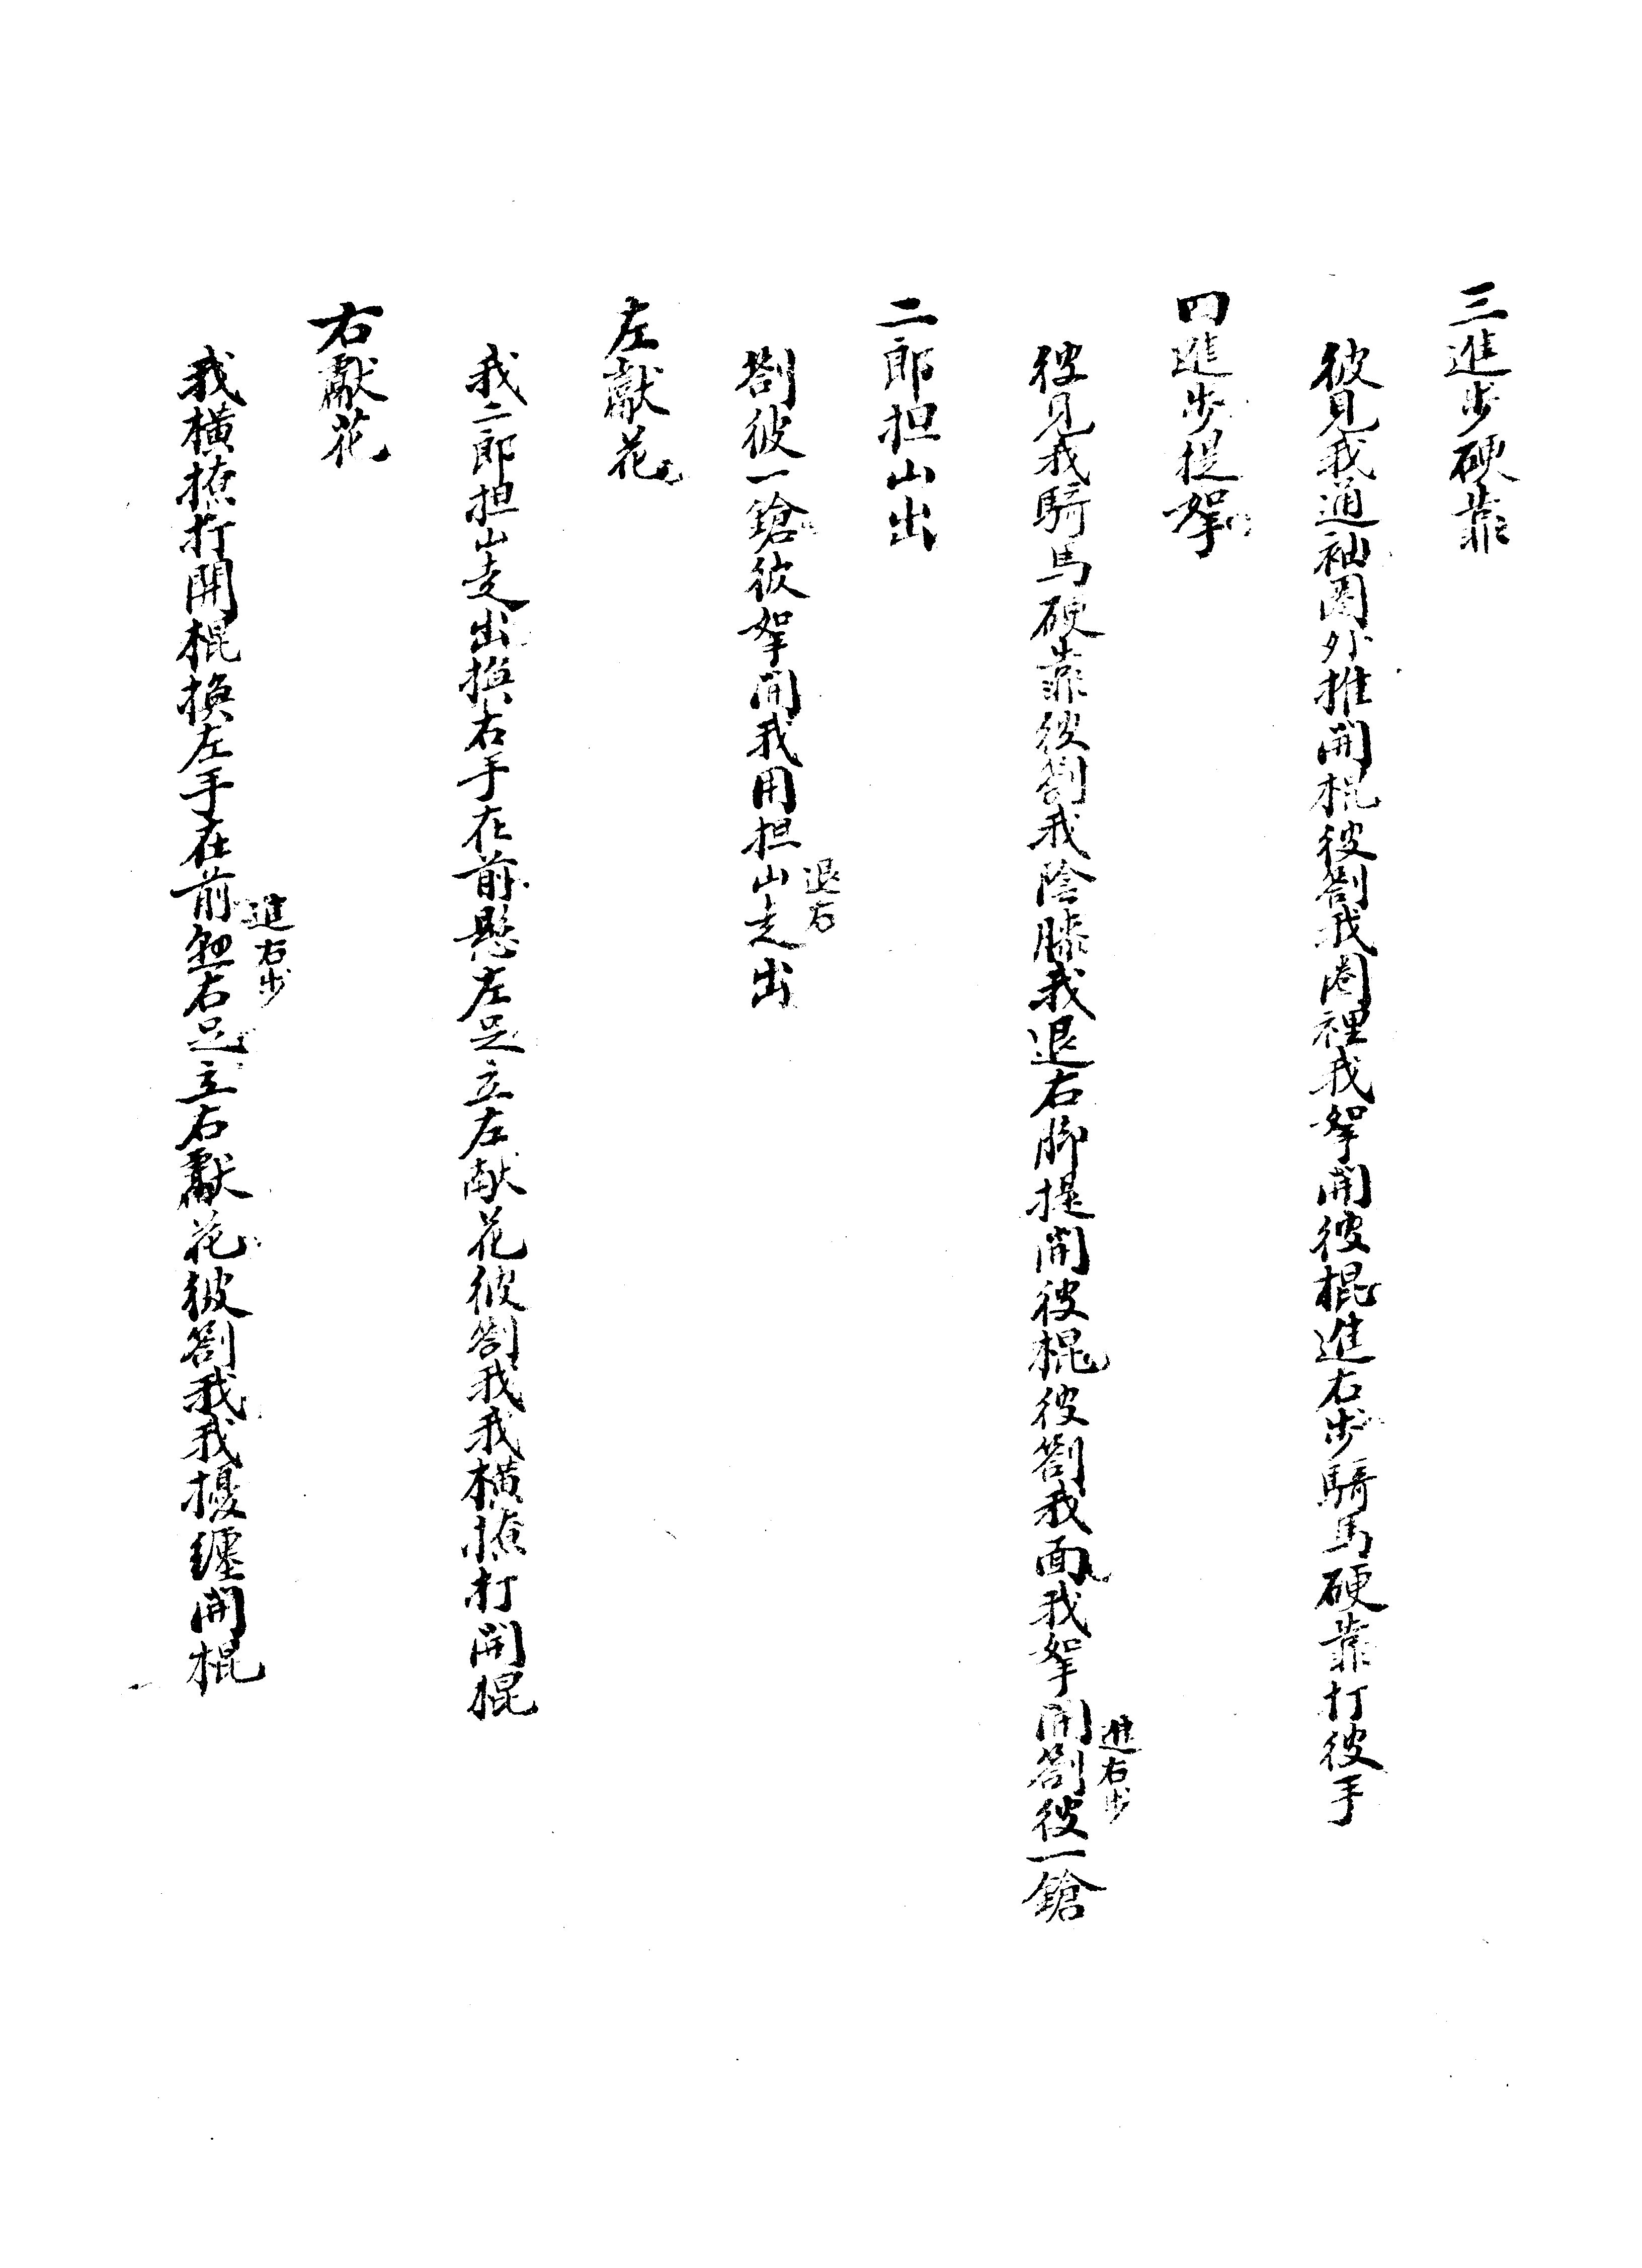 三進步硬靠
彼見我通袖圈外推開棍彼劄我圈裡我拏開彼棍進右步騎馬硬靠打彼手
四進步提拏
彼見我騎馬硬靠彼劄我陰膝我退右脚提開彼棍彼劄我面我拏開劄彼一鎗
進右步
二郎担山出
劄彼一鎗彼拏開我用担山走出
退右
左獻花
我二郎担山走出換右手在前懸左足立左献花彼劄我我横撩打開棍
右獻花
我横撩打開棍換左手在前右足立右獻花彼劄我我擾纏開棍
進右步